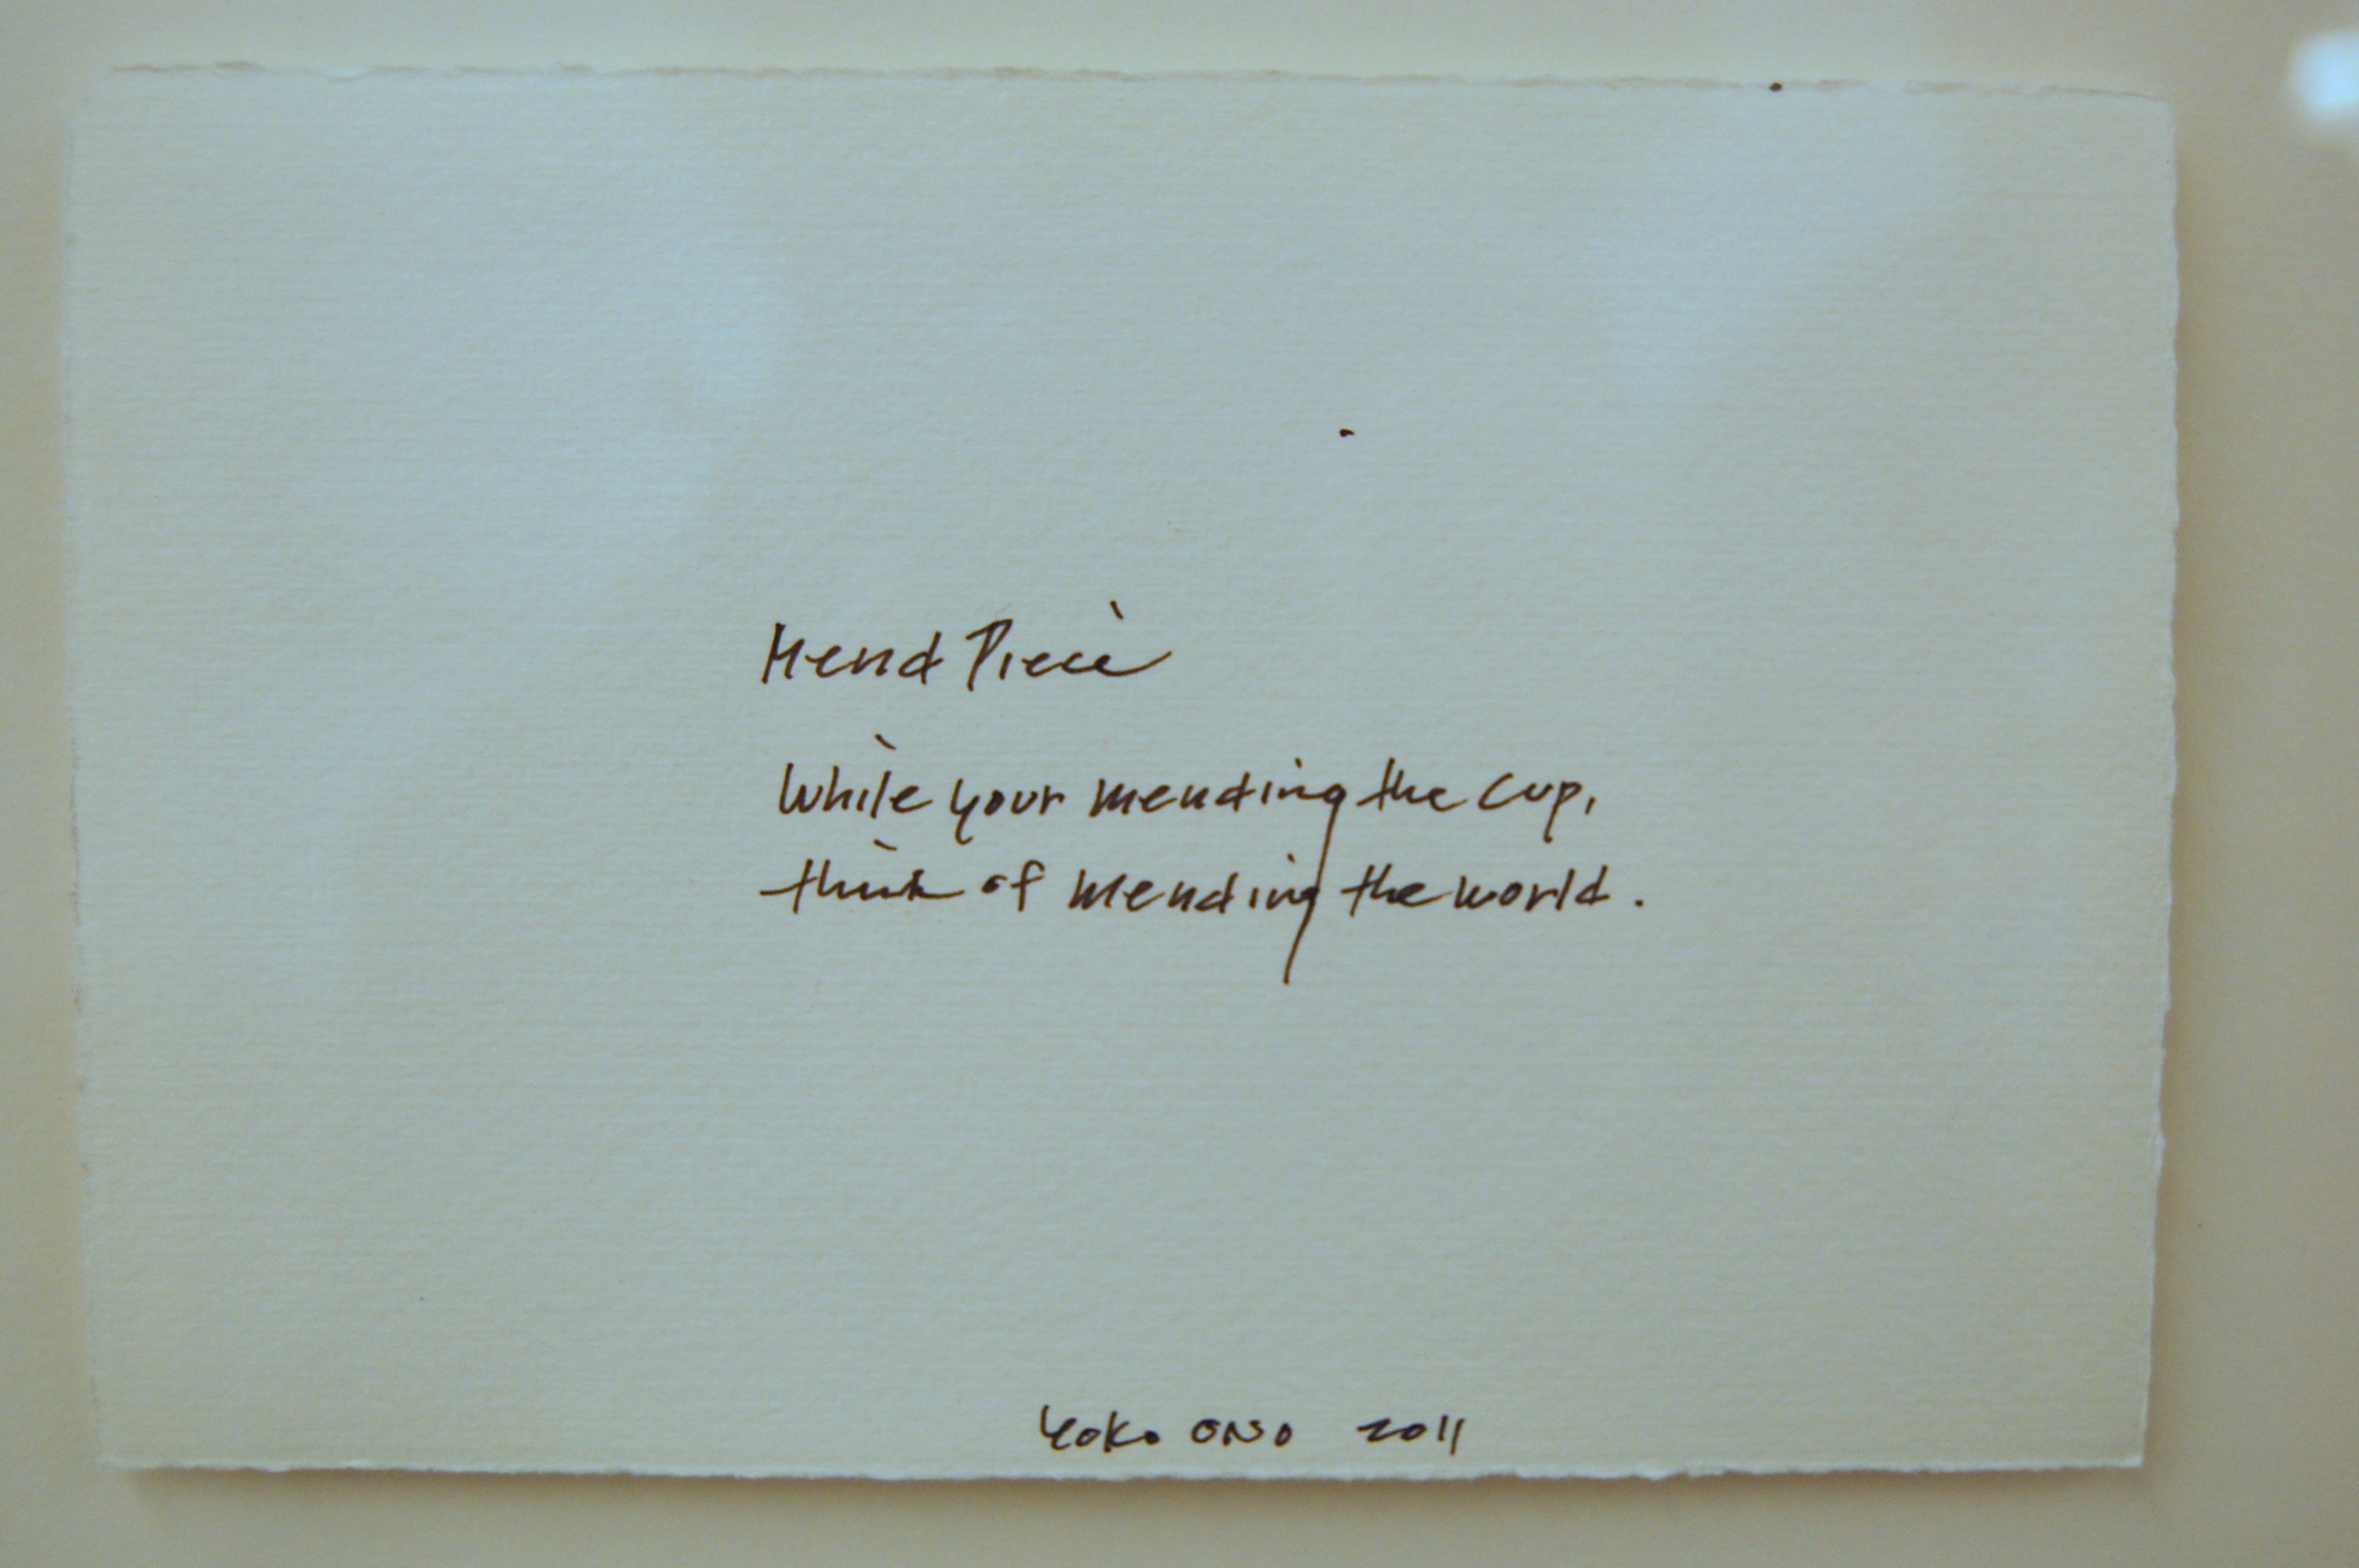 Mend Piece
While your mending the cup,
think of mending the world.
Yoko Ono 2011